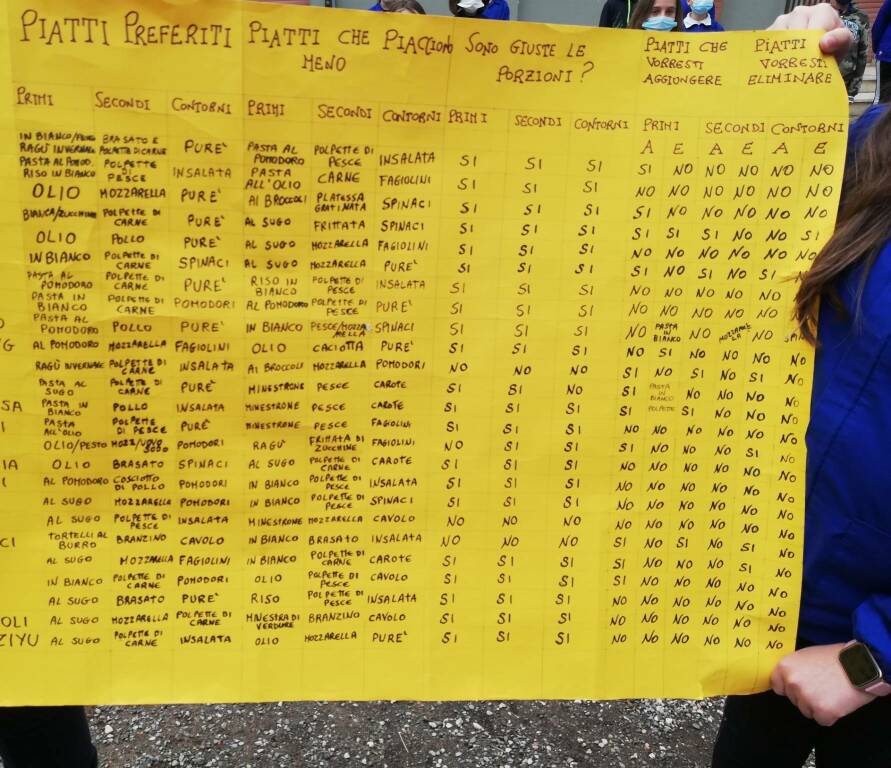 PIATTI PREFERITI PIATTI CHE PIACCIONO MENO SONO GIUSTE LE PORZIONI? PIATTI CHE VORRESTI AGGIUNGERE PIATTI VORRESTI ELIMINARE
PRIMI SECONDI CONTORNI PRIMI SECONDI CONTORNI PRIMI SECONDI CONTORNI PRIMI SECONDI CONTORNI
A E A E A E
IN BIANCO/PESTO RAGÙ INVERNALE BRASATO E POLPETTE DI CARNE PURE' PASTA AL POMODORO POLPETTE DI PESCE INSALATA SI SI SI SI NO NO NO NO NO
PASTA AL POMOD. RISO IN BIANCO POLPETTE DI PESCE INSALATA PASTA ALL'OLIO CARNE FAGIOLINI SI SI SI NO NO NO NO NO NO
OLIO MOZZARELLA PURE' AI BROCCOLI PLATESSA GRATINATA SPINACI SI SI SI SI NO NO NO NO NO
BIANCA/ZUCCHINE POLPETTE DI CARNE PURE' AL SUGO FRITTATA SPINACI SI SI SI SI SI SI NO NO SI
OLIO POLLO PURE' AL SUGO MOZZARELLA FAGIOLINI SI SI SI NO NO NO NO NO NO
IN BIANCO POLPETTE DI CARNE SPINACI AL SUGO MOZZARELLA PURE' SI SI SI SI NO SI NO SI
PASTA AL POMODORO POLPETTE DI CARNE PURE' RISO IN BIANCO POLPETTE DI PESCE INSALATA SI SI SI NO NO NO NO NO
PASTA IN BIANCO POLPETTE DI CARNE POMODORI AL POMODORO POLPETTE DI PESCE PURE' SI SI SI NO PASTA IN BIANCO NO MOZZARELLA NO
PASTA AL POMODORO POLLO PURE' IN BIANCO PESCE/MOZZARELLA SPINACI SI SI SI NO SI NO NO NO NO
AL POMODORO MOZZARELLA FAGIOLINI OLIO CACIOTTA PURE' SI SI SI SI NO SI NO SI NO
RAGÙ INVERNALE POLPETTE DI CARNE INSALATA AI BROCCOLI MOZZARELLA POMODORI NO NO NO SI PASTA IN BIANCO NO NO NO NO
PASTA AL SUGO POLPETTE DI CARNE PURE' MINESTRONE PESCE CAROTE SI SI NO SI POLPETTE SI NO NO NO
SA PASTA IN BIANCO POLLO INSALATA MINESTRONE PESCE CAROTE SI SI SI NO NO NO NO NO NO
I PASTA ALL'OLIO POLPETTE DI PESCE PURE' MINESTRONE PESCE FAGIOLINI SI SI SI SI NO NO NO SI NO
OLIO/PESTO MOZZ/UOVO SODO POMODORI RAGÙ FRITTATA DI ZUCCHINE FAGIOLINI NO SI SI NO NO NO NO NO NO
IA OLIO BRASATO SPINACI AL SUGO POLPETTE DI CARNE CAROTE SI SI SI NO NO NO NO NO NO
I AL POMODORO COSCIOTTO DI POLLO POMODORI IN BIANCO POLPETTE DI PESCE INSALATA SI SI SI NO NO NO NO NO NO
AL SUGO MOZZARELLA POMODORI IN BIANCO POLPETTE DI PESCE SPINACI SI SI SI NO NO NO NO NO NO
AL SUGO POLPETTE DI PESCE INSALATA MINESTRONE MOZZARELLA CAVOLO NO NO NO SI NO SI NO SI NO
CI TORTELLI AL BURRO BRANZINO CAVOLO IN BIANCO BRASATO INSALATA NO NO NO SI NO NO NO SI NO
AL SUGO MOZZARELLA FAGIOLINI IN BIANCO POLPETTE DI CARNE CAROTE SI SI SI SI NO NO NO NO
IN BIANCO POLPETTE DI CARNE POMODORI OLIO POLPETTE DI PESCE CAVOLO SI SI SI NO NO NO NO NO
AL SUGO BRASATO PURE' RISO POLPETTE DI PESCE INSALATA SI SI SI NO NO NO NO NO NO
OLI AL SUGO MOZZARELLA POLPETTE DI CARNE MINESTRA DI VERDURE BRANZINO CAVOLO SI SI SI NO NO NO NO NO NO
ZIYU AL SUGO POLPETTE DI CARNE INSALATA OLIO MOZZARELLA PURE' SI SI SI NO NO NO NO NO NO